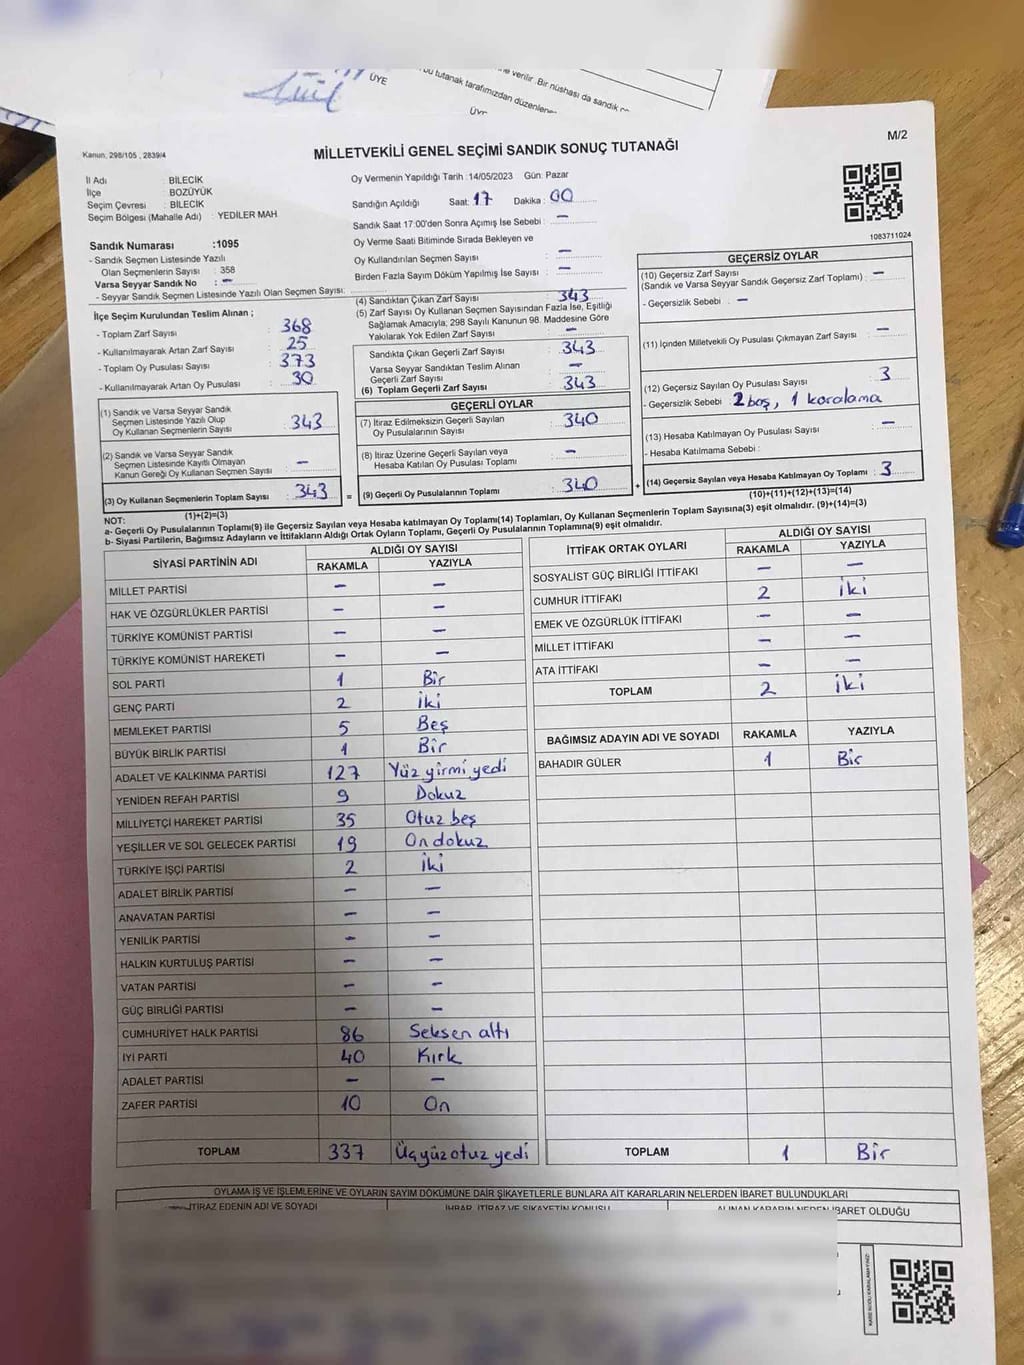 ÜYE
bu tutanak tarafımızdan düzenlene
verilir. Bir nüshası da sandık
M/2
Kanun, 298/105 , 2839/4
MİLLETVEKİLİ GENEL SEÇİMİ SANDIK SONUÇ TUTANAĞI
İl Adı : BİLECİK
İlçe : BOZÜYÜK
Seçim Çevresi : BİLECİK
Seçim Bölgesi (Mahalle Adı) : YEDİLER MAH.
Oy Vermenin Yapıldığı Tarih :14/05/2023 Gün: Pazar
Sandığın Açıldığı Saat: 17 Dakika : 00
Sandık Saat 17:00'den Sonra Açımış İse Sebebi : –
Oy Verme Saati Bitiminde Sırada Bekleyen ve
Oy Kullandırılan Seçmen Sayısı : –
Birden Fazla Sayım Döküm Yapılmış İse Sayısı : –
1083711024
Sandık Numarası :1095
- Sandık Seçmen Listesinde Yazılı
Olan Seçmenlerin Sayısı : 358
Varsa Seyyar Sandık No : –
- Seyyar Sandık Seçmen Listesinde Yazılı Olan Seçmen Sayısı:
İlçe Seçim Kurulundan Teslim Alınan ;
- Toplam Zarf Sayısı : 368
- Kullanılmayarak Artan Zarf Sayısı : 25
- Toplam Oy Pusulası Sayısı : 373
- Kullanılmayarak Artan Oy Pusulası : 30
(1) Sandık ve Varsa Seyyar Sandık
Seçmen Listesinde Yazılı Olup
Oy Kullanan Seçmenlerin Sayısı : 343
(2) Sandık ve Varsa Seyyar Sandık
Seçmen Listesinde Kayıtlı Olmayan
Kanun Gereği Oy Kullanan Seçmen Sayısı : –
(3) Oy Kullanan Seçmenlerin Toplam Sayısı : 343
(1)+(2)=(3)
(4) Sandıktan Çıkan Zarf Sayısı : 343
(5) Zarf Sayısı Oy Kullanan Seçmen Sayısından Fazla İse, Eşitliği
Sağlamak Amacıyla, 298 Sayılı Kanunun 98. Maddesine Göre
Yakılarak Yok Edilen Zarf Sayısı : –
Sandıkta Çıkan Geçerli Zarf Sayısı : 343
Varsa Seyyar Sandıktan Teslim Alınan
Geçerli Zarf Sayısı : –
(6) Toplam Geçerli Zarf Sayısı : 343
GEÇERLİ OYLAR
(7) İtiraz Edilmeksizin Geçerli Sayılan
Oy Pusulalarının Sayısı : 340
(8) İtiraz Üzerine Geçerli Sayılan veya
Hesaba Katılan Oy Pusulası Toplamı : –
= (9) Geçerli Oy Pusulalarının Toplamı : 340 +
GEÇERSİZ OYLAR
(10) Geçersiz Zarf Sayısı
(Sandık ve Varsa Seyyar Sandık Geçersiz Zarf Toplamı) : –
- Geçersizlik Sebebi : –
(11) İçinden Milletvekili Oy Pusulası Çıkmayan Zarf Sayısı : –
(12) Geçersiz Sayılan Oy Pusulası Sayısı : 3
- Geçersizlik Sebebi : 2 boş, 1 karalama
(13) Hesaba Katılmayan Oy Pusulası Sayısı : –
- Hesaba Katılmama Sebebi :
(14) Geçersiz Sayılan veya Hesaba Katılmayan Oy Toplamı : 3
(10)+(11)+(12)+(13)=(14)
NOT:
a- Geçerli Oy Pusulalarının Toplamı(9) ile Geçersiz Sayılan veya Hesaba katılmayan Oy Toplamı(14) Toplamları, Oy Kullanan Seçmenlerin Toplam Sayısına(3) eşit olmalıdır. (9)+(14)=(3)
b- Siyasi Partilerin, Bağımsız Adayların ve İttifakların Aldığı Ortak Oyların Toplamı, Geçerli Oy Pusulalarının Toplamına(9) eşit olmalıdır.
SİYASİ PARTİNİN ADI ALDIĞI OY SAYISI
RAKAMLA YAZIYLA
MİLLET PARTİSİ – –
HAK VE ÖZGÜRLÜKLER PARTİSİ – –
TÜRKİYE KOMÜNİST PARTİSİ – –
TÜRKİYE KOMÜNİST HAREKETİ – –
SOL PARTİ 1 Bir
GENÇ PARTİ 2 İki
MEMLEKET PARTİSİ 5 Beş
BÜYÜK BİRLİK PARTİSİ 1 Bir
ADALET VE KALKINMA PARTİSİ 127 Yüz yirmi yedi
YENİDEN REFAH PARTİSİ 9 Dokuz
MİLLİYETÇİ HAREKET PARTİSİ 35 Otuz beş
YEŞİLLER VE SOL GELECEK PARTİSİ 19 On dokuz
TÜRKİYE İŞÇİ PARTİSİ 2 İki
ADALET BİRLİK PARTİSİ – –
ANAVATAN PARTİSİ – –
YENİLİK PARTİSİ – –
HALKIN KURTULUŞ PARTİSİ – –
VATAN PARTİSİ – –
GÜÇ BİRLİĞİ PARTİSİ – –
CUMHURİYET HALK PARTİSİ 86 Seksen altı
İYİ PARTİ 40 Kırk
ADALET PARTİSİ – –
ZAFER PARTİSİ 10 On
TOPLAM 337 Üçyüz otuz yedi
İTTİFAK ORTAK OYLARI ALDIĞI OY SAYISI
RAKAMLA YAZIYLA
SOSYALİST GÜÇ BİRLİĞİ İTTİFAKI – –
CUMHUR İTTİFAKI 2 İki
EMEK VE ÖZGÜRLÜK İTTİFAKI – –
MİLLET İTTİFAKI – –
ATA İTTİFAKI – –
TOPLAM 2 İki
BAĞIMSIZ ADAYIN ADI VE SOYADI RAKAMLA YAZIYLA
BAHADIR GÜLER 1 Bir
TOPLAM 1 Bir
OYLAMA İŞ VE İŞLEMLERİNE VE OYLARIN SAYIM DÖKÜMÜNE DAİR ŞİKAYETLERLE BUNLARA AİT KARARLARIN NELERDEN İBARET BULUNDUKLARI
İTİRAZ EDENİN ADI VE SOYADI İHBAR, İTİRAZ VE ŞİKAYETİN KONUSU ALINAN KARARIN NEDEN İBARET OLDUĞU